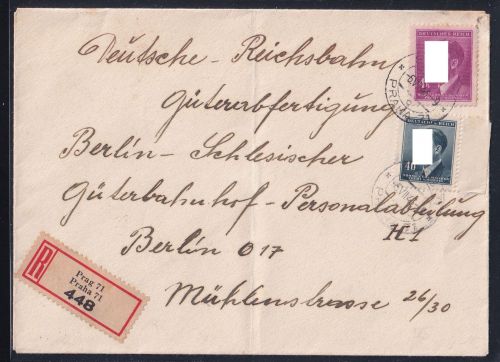 DEUTSCHES REICH
PRAHA
Deutsche - Reichsbahn
Güterabfertigung
DEUTSCHES REICH
40
Berlin - Schlesischer
Güterbahnhof - Personalabteilung
H1
Berlin O17
Mühlenstrasse 26/30
R
Prag 71
Praha 71
448